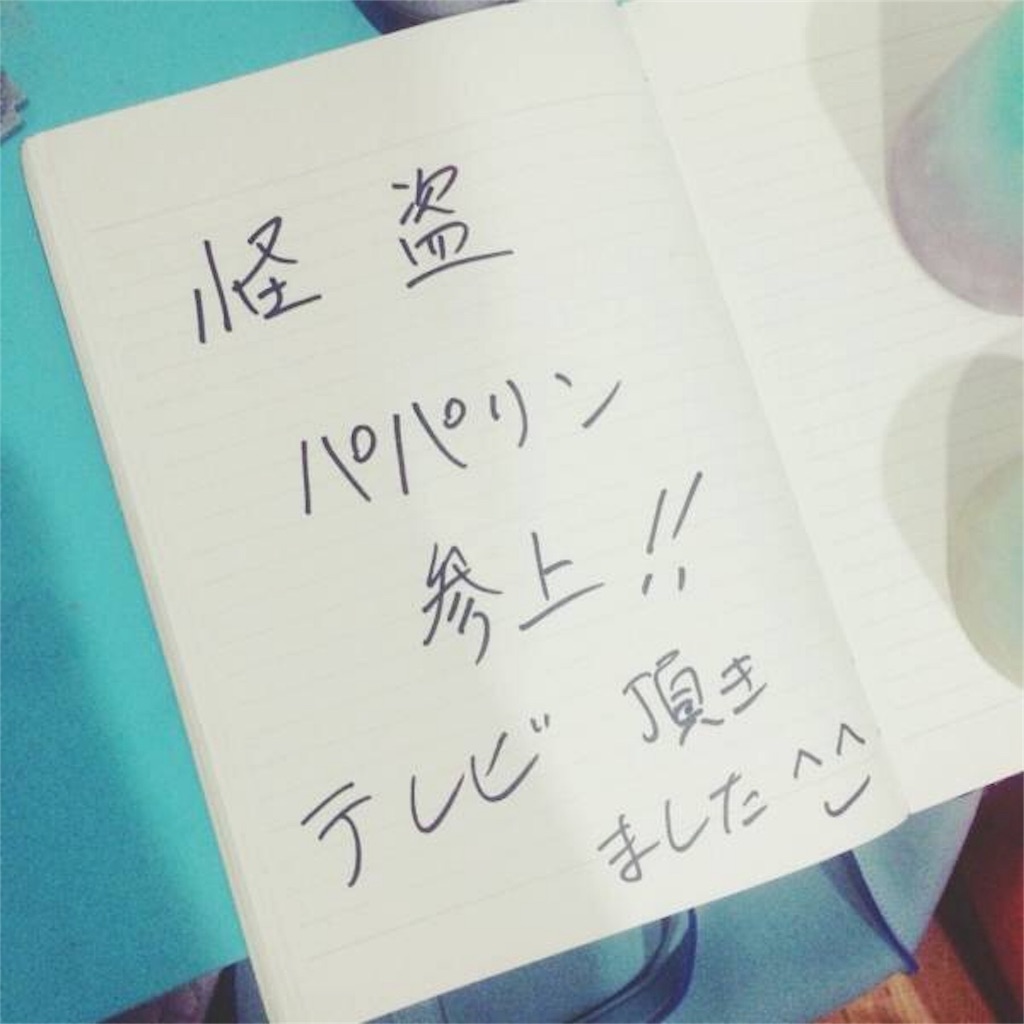 怪盗
パパリン
参上!!
テレビ頂き
ました^^